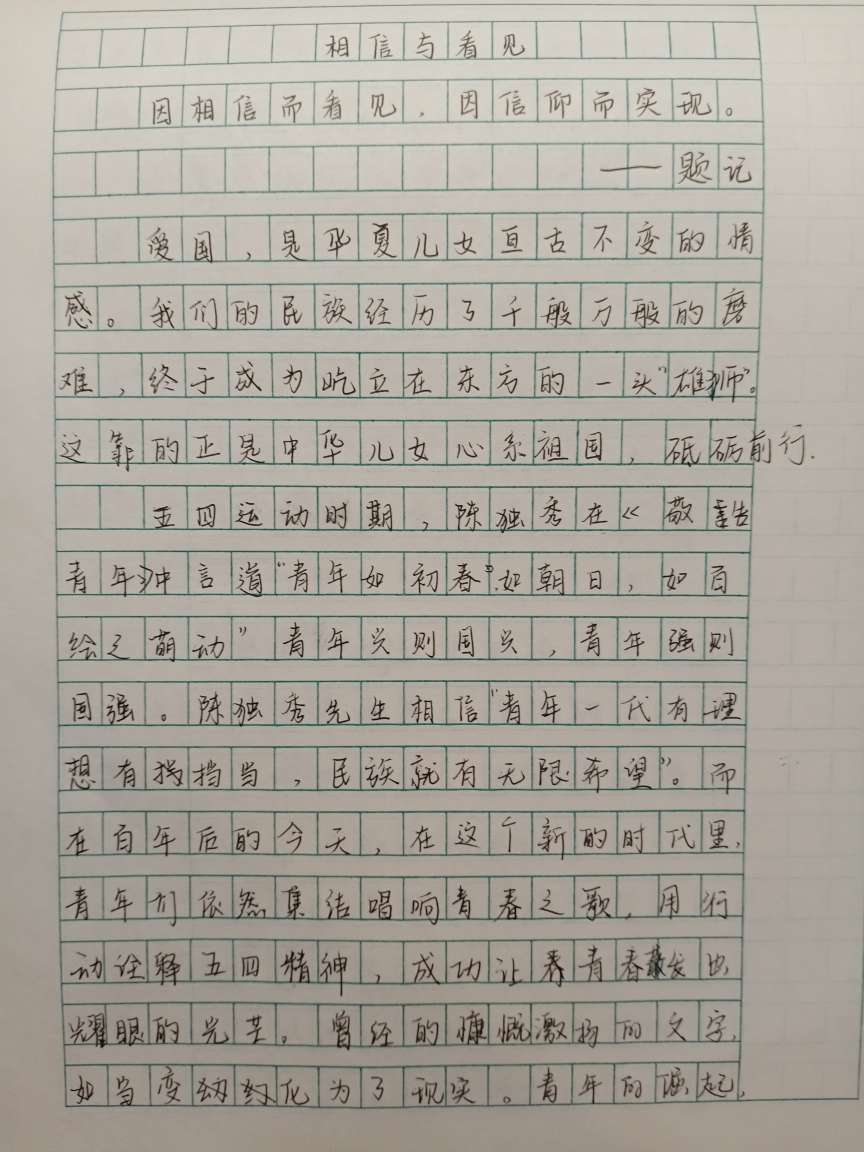 相信与看见
因相信而看见，因信仰而实现。
——题记
爱国，是华夏儿女亘古不变的情
感。我们的民族经历了千般万般的磨
难，终于成为屹立在东方的一头“雄狮”。
这靠的正是中华儿女心系祖国，砥砺前行.
五四运动时期，陈独秀在《敬告
青年》中言道“青年如初春”.如朝日，如百
绘之萌动”青年兴则国兴，青年强则
国强。陈独秀先生相信“青年一代有理
想有担当，民族就有无限希望”。而
在百年后的今天，在这个新的时代里，
青年们依然集结唱响青春之歌，用行
动诠释五四精神，成功让青春散发出
耀眼的光芒。曾经的慷慨激扬的文字，
如当变化为了现实。青年的崛起，